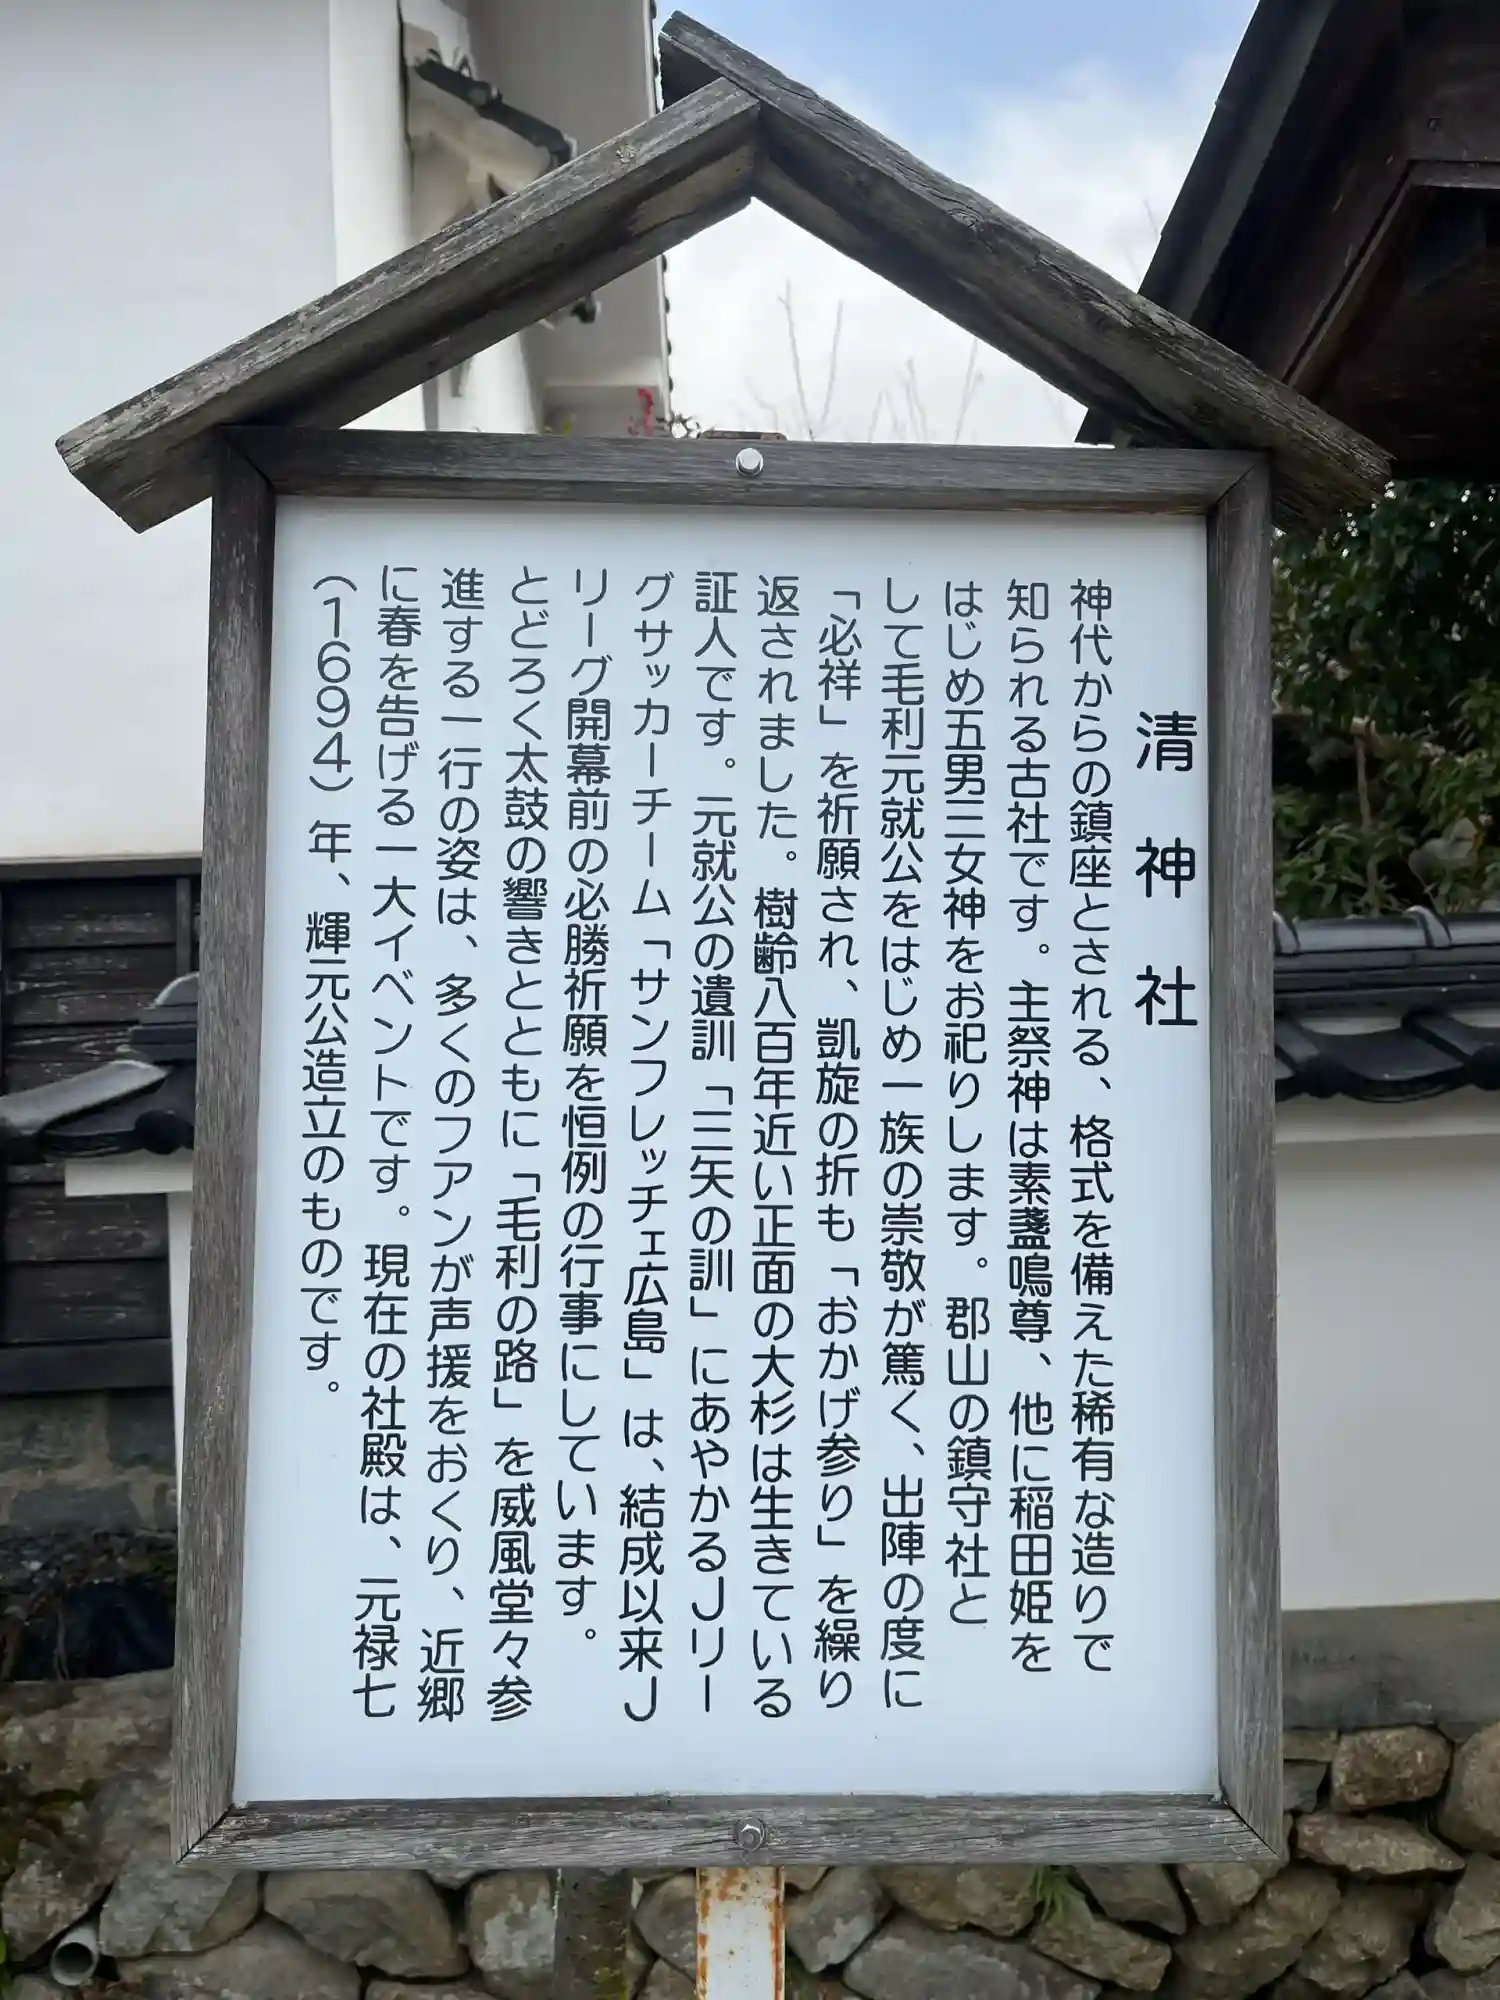 清神社
神代からの鎮座とされる、格式を備えた稀有な造りで
知られる古社です。主祭神は素盞鳴尊、他に稲田姫を
はじめ五男三女神をお祀りします。郡山の鎮守社と
して毛利元就公をはじめ一族の崇敬が篤く、出陣の度に
「必祥」を祈願され、凱旋の折も「おかげ参り」を繰り
返されました。樹齢八百年近い正面の大杉は生きている
証人です。元就公の遺訓「三矢の訓」にあやかるJリー
グサッカーチーム「サンフレッチェ広島」は、結成以来J
リーグ開幕前の必勝祈願を恒例の行事にしています。
とどろく太鼓の響きとともに「毛利の路」を威風堂々参
進する一行の姿は、多くのファンが声援をおくり、近郷
に春を告げる一大イベントです。現在の社殿は、元禄七
（1694）年、輝元公造立のものです。